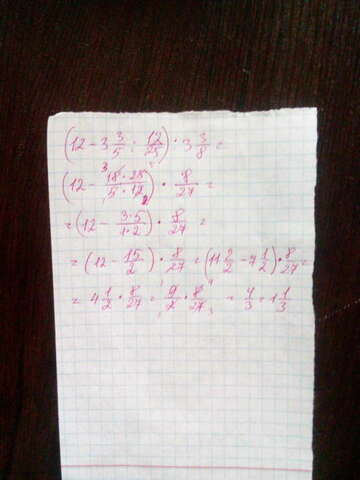 (12 - 3 3/5 : 12/25) · 3 3/8 =
(12 - 18·25/5·12) · 8/27 =
= (12 - 3·5/1·2) · 8/27 =
= (12 - 15/2) · 8/27 = (11 2/2 - 7 1/2) · 8/27 =
= 4 1/2 · 8/27 = 9/2 · 8/27 = 4/3 = 1 1/3